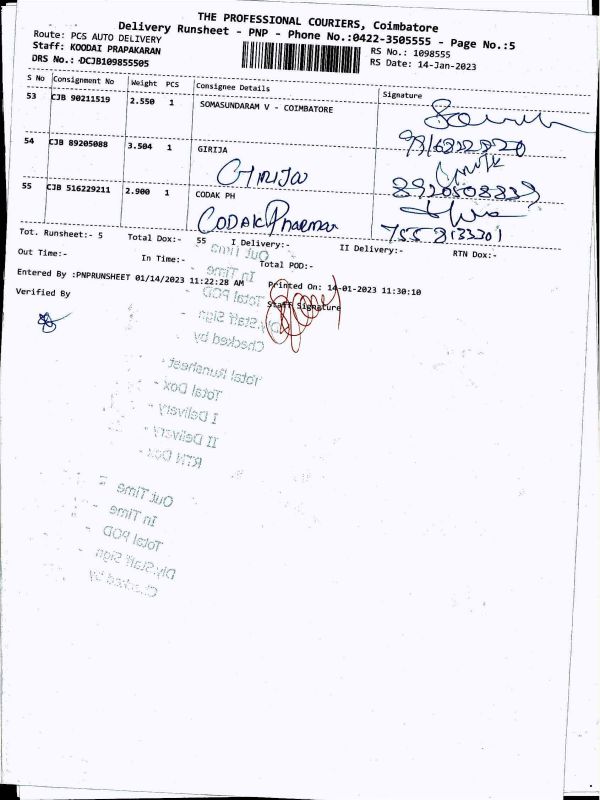 THE PROFESSIONAL COURIERS, Coimbatore
Delivery Runsheet - PNP - Phone No.:0422-3505555 - Page No.:5
Route: PCS AUTO DELIVERY
Staff: KOODAI PRAPAKARAN
RS No.: 1098555
DRS No.: DCJB109855505
RS Date: 14-Jan-2023
S No Consignment No Weight PCS Consignee Details Signature
53 CJB 90211519 2.550 1 SOMASUNDARAM V - COIMBATORE
54 CJB 89205088 3.504 1 GIRIJA
GIRIJA
8920508839
55 CJB 516229211 2.900 1 CODAK PH
CODAK Pharma
755 8133301
Tot. Runsheet:- 5 Total Dox:- 55 I Delivery:- II Delivery:- RTN Dox:-
Out Time:- In Time:- Total POD:-
Entered By :PNPRUNSHEET 01/14/2023 11:22:28 AM Printed On: 14-01-2023 11:30:10
Verified By Staff Signature
Out Time
In Time
Total POD
Dly.Staff Sign
Checked by
Total Runsheet -
Total Dox -
I Delivery -
II Delivery -
RTN Dox -
Out Time -
In Time -
Total POD -
Dly.Staff Sign -
Checked by